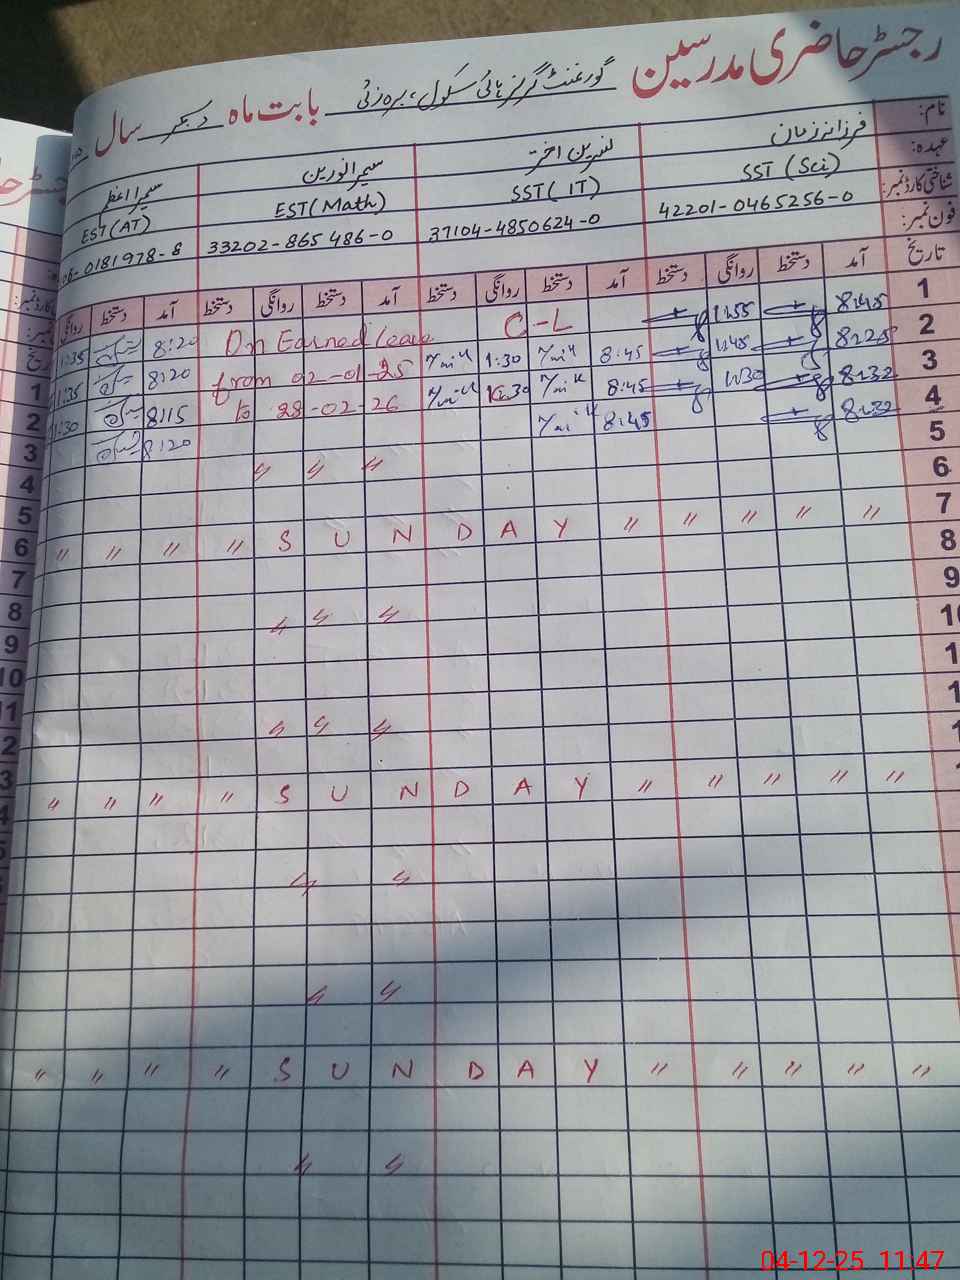 رجسٹر حاضری مدرسین گورنمنٹ گرلز ہائی سکول، بره زئی بابت ماہ دسمبر سال
نام: فرزانہ زمان نسرین اختر سمیرا نورین سمیرا اعظم
عہدہ: SST (Sci) SST (IT) EST (Math) EST (AT)
شناختی کارڈ نمبر: 42201-0465256-0 37104-4850624-0 33202-865486-0 06-0181978-8
فون نمبر:
تاریخ آمد دستخط روانگی دستخط آمد دستخط روانگی دستخط آمد دستخط روانگی دستخط آمد دستخط روانگی
1 8:45 1:55 C-L On Earned leave 8:20 1:35
2 8:25 1:45 8:45 1:30 from 02-01-25 8:20 1:35
3 8:32 8:45 to 28-02-26 8:15 1:30
4 8:32 8:45 8:20
5 〃 〃 〃
6
7 〃 〃 S U N D A Y 〃 〃
8
9 〃 〃 〃
10
〃 〃 〃
〃 〃 S U N D A Y 〃 〃
〃 〃
〃 〃
〃 〃 S U N D A Y 〃 〃
〃 〃
04-12-25 11:47